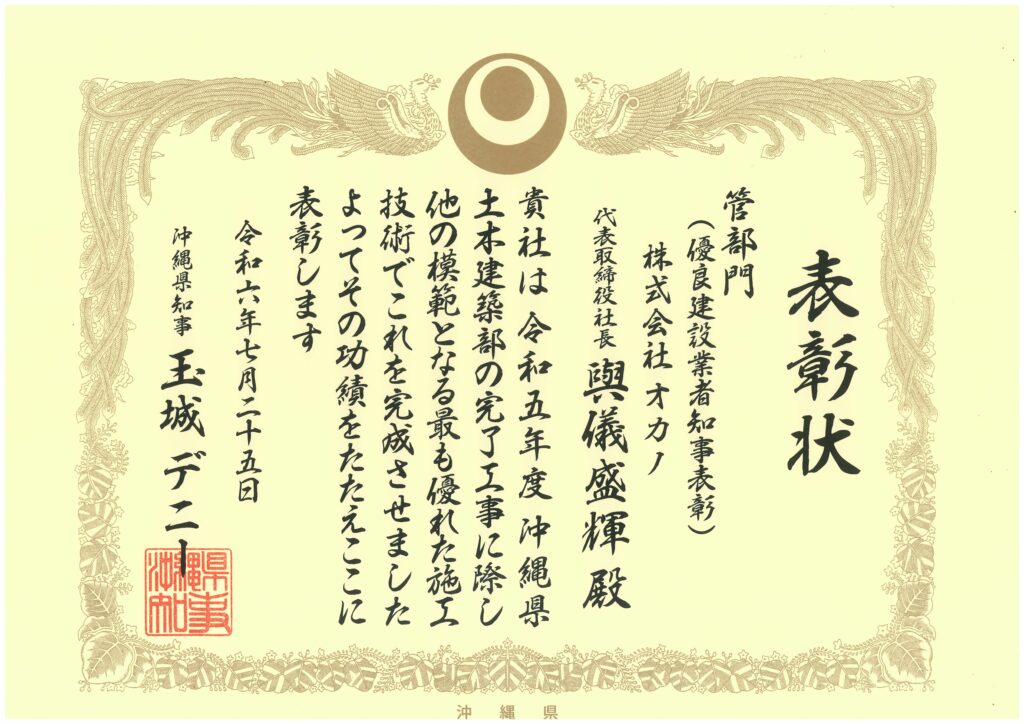 表彰状
管部門
（優良建設業者知事表彰）
株式会社オカノ
代表取締役社長 與儀盛輝 殿
貴社は令和五年度沖縄県
土木建築部の完了工事に際し
他の模範となる最も優れた施工
技術でこれを完成させました
よってその功績をたたえここに
表彰します
令和六年七月二十五日
沖縄県知事 玉城デニー
沖縄県知事
沖縄県